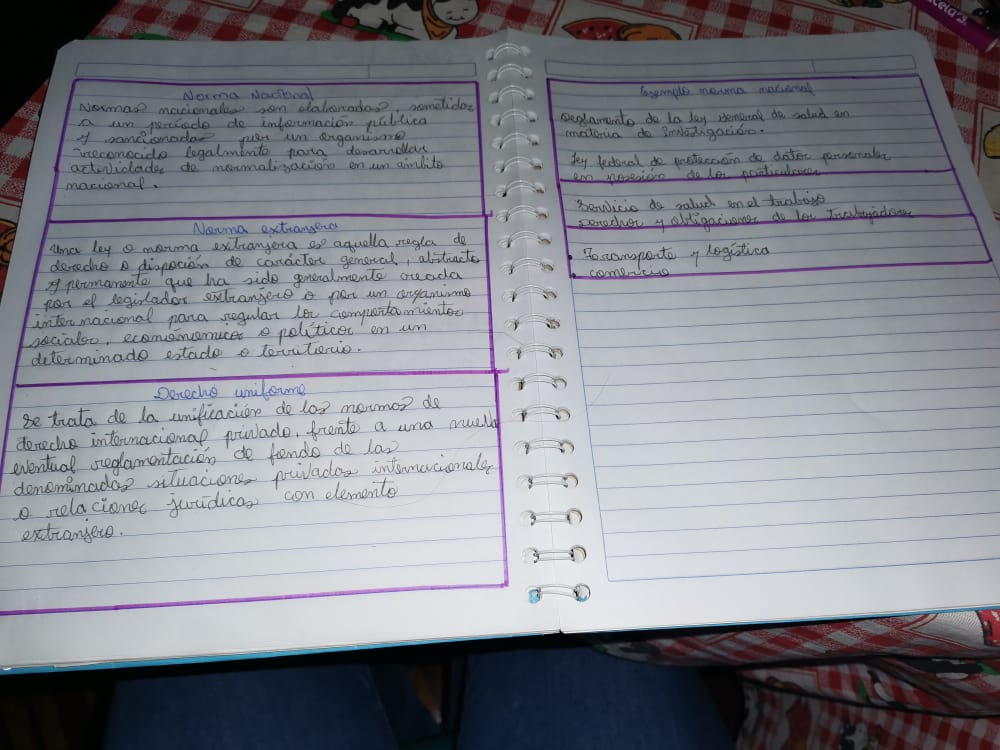 Norma Nacional
Normas nacionales son elaboradas, sometidas
a un período de información pública
y sancionadas por un organismo
reconocido legalmente para desarrollar
actividades de normalización en un ámbito
nacional.
Norma extranjera
Una ley o norma extranjera es aquella regla de
derecho o disposción de carácter general, abstracto
y permanente que ha sido generalmente creada
por el legislador extranjero o por un organismo
internacional para regular los comportamientos
sociales, económomicos o políticos en un
determinado estado o territorio.
Derecho uniforme
Se trata de la unificación de las normas de
derecho internacional privado, frente a una nueva
eventual reglamentación de fondo de las
denominadas situaciones privadas internacionales
o relaciones jurídicas con elemento
extranjero.
Ejemplo norma nacional
Reglamento de la ley general de salud en
materia de Investigación.
Ley federal de protección de datos personales
en posesión de los particulares
Servicio de salud en el trabajo
derechos y obligaciones de los trabajadores
• Transporte y logística
• comercio